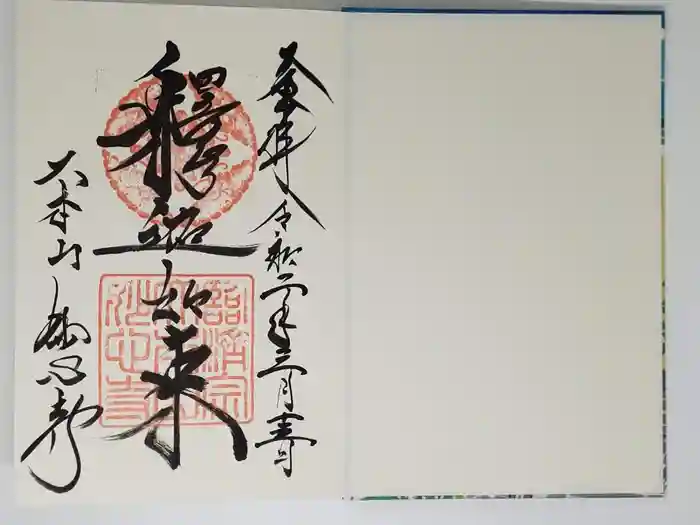 奉拝 令和二年三月日
釋迦如来
大本山 妙心寺
臨済宗
大本山
妙心寺